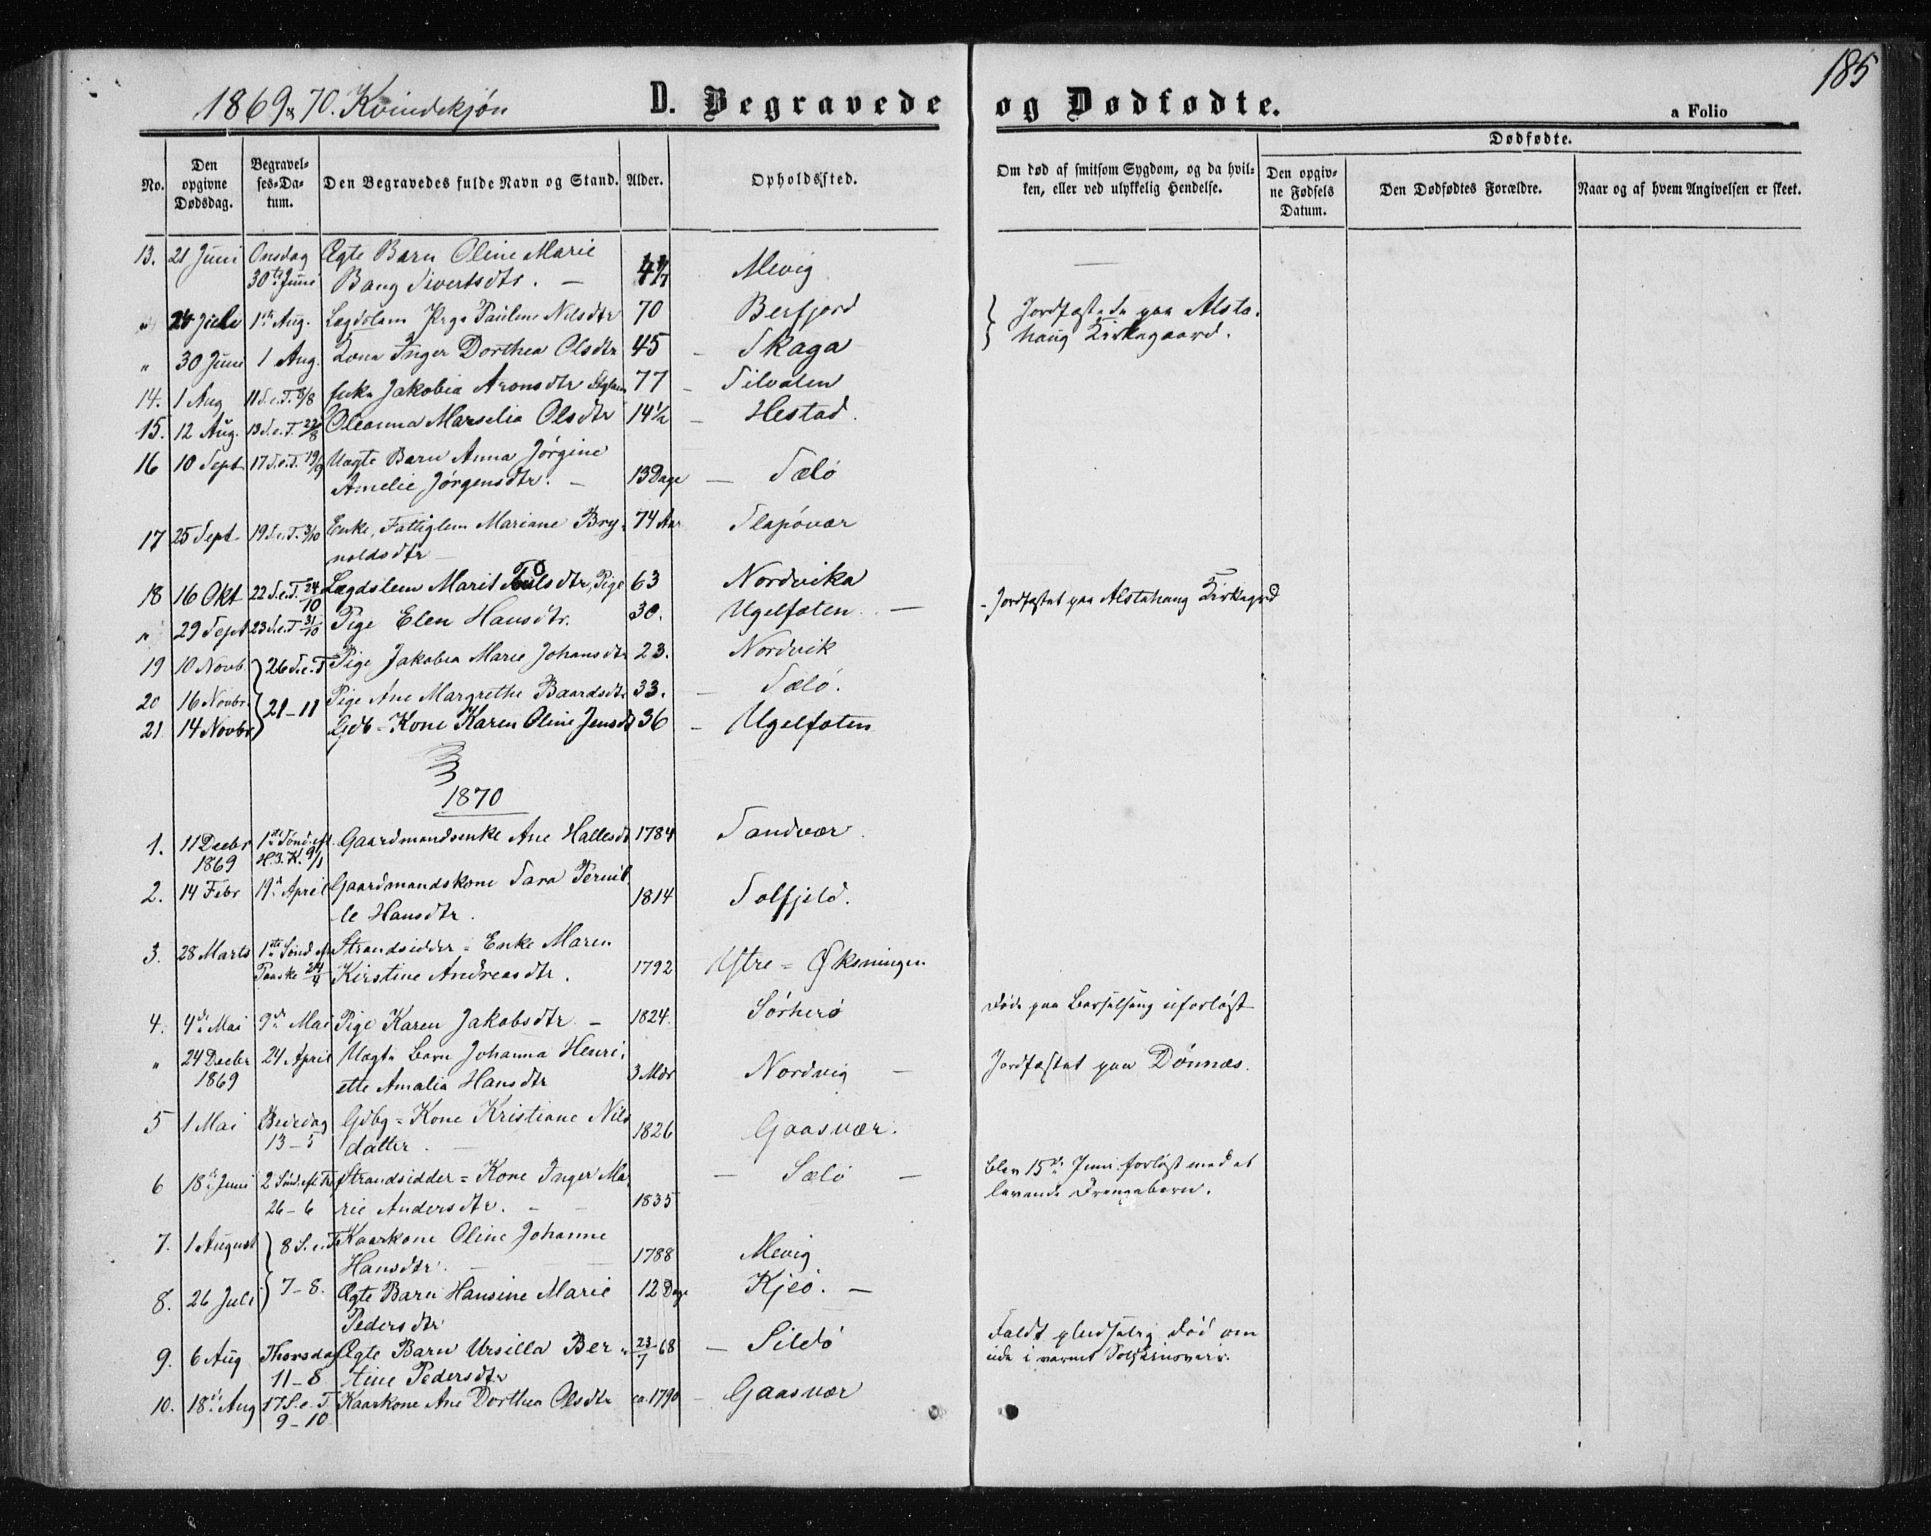 185
1869 & 70. Kvindekjøn D. Begravede og Dødfødte. a Folio
No. Den opgivne Dødsdag. Begravelses-Datum. Den Begravedes fulde Navn og Stand. Alder. Opholdssted. Om død af smitsom Sygdom, og da hvilken, eller ved ulykkelig Hendelse. Dødfødte. Den opgivne Fødsels Datum. Den Dødfødtes Forældre. Naar og af hvem Angivelsen er skeet.
13. 21 Juni Onsdag Ægte Barn Oline Marie
30te Juni Bang Sivertsdtr. — Mevig —
" 24 Juli 1ste Aug. Lægdslem Paulene Nilsdtr 70 Berfjord } Jordfæstede paa Alsta-
" 30 Juni 1 Aug. Kona Inger Dorthea Olsdtr 45 - Skaga haug Kirkegaard.
14. 1 Aug 11 S.e.T. 8/8 Enke Jakobia Aronsdtr 77 - Silvalen
15. 12 Aug. 13 S.e.T. 22/8 Oleanna Marselia Olsdtr 14½ - Hestad.
16 10 Sept 17 S.e.T. 19/9 Uægte Barn Anna Jørgine
Amelie Jørgensdtr. — 13 Dage — Sælø
17 25 Sept 19 S.e.T. 3/10 Enke, Fattiglem Mariane Bry- 74 Aar Slapøvær
noldsdtr —
18 16 Okt 22 S.e.T. 24/10 Lægdslem Marit Pige 63 Nordvika
" 29 Sept 23 S.e.T. 31/10 Pige Elen Hansdtr. 30. Ugelfoten — - Jordfæstet paa Alstahaug Kirkegrd
19 10 Novb. } 26 S.e.T Pige Jakobia Marie Johansdtr 23. Nordvik
20 16 Novbr. 21-11 Pige Ane Margrethe Baardsdtr 33. - Sælø.
21 14 Novbr Gdb = Kone Karen Oline Jensdt 36 - Ugelfoten
1870
1. 11 Decbr 1ste Sønd. eft. Gaardmandsenke Ane Hallesdt 1784 Sandvær.
1869 H. 3. K. 9/1
2. 14 Febr 19de April Gaardmandskone Sara Pernil-
le Hansdtr. 1814 Solfjeld.
3. 28 Marts 1ste Sønd eftr Strandsidder = Enke Maren
Paaske 24/4 Kirstine Andreasdtr. 1792 Ystre = Øksningen
4. 4de Mai 9de Mai Pige Karen Jakobsdtr. — 1824. Sørherø Døde paa Barselseng uforløst
" 24 Decbr 24 April Uægte Barn Johanna Henri-
1869 ette Amalia Hansdtr 3 Mdr Nordvig — Jordfæstet paa Dønnæs.
5 1 Mai Bededag Gdbg = Kone Kristiane Nils
13-5 datter. — 1826 Gaasvær.
6 18de Juni 2 Sønd. eft Tre Strandsidder = Kone Inger Ma- — Sælø — blev 15de Juni forløst med et
26-6 rie Andersdtr. — 1835 levende Drengebarn.
7. 1 August } 8 S.e.T Kaarkone Oline Johanne
Hansdtr. — 1788 Mevig
8. 26 Juli 7-8. Ægte Barn Hansine Marie 12 Dage Kjeø. —
Pedersdtr
9. 6 Aug Thorsdag Ægte Barn Ursilla Ber- 23/7 68 — Sildø Faldt pludselig død om
11-8 tine Pedersdtr ude i varmt Solskinsveir.
10. 18de Aug 17 S.e.T. Kaarkone Ane Dorthea Olsdtr ca. 1790 - Gaasvær
9-10